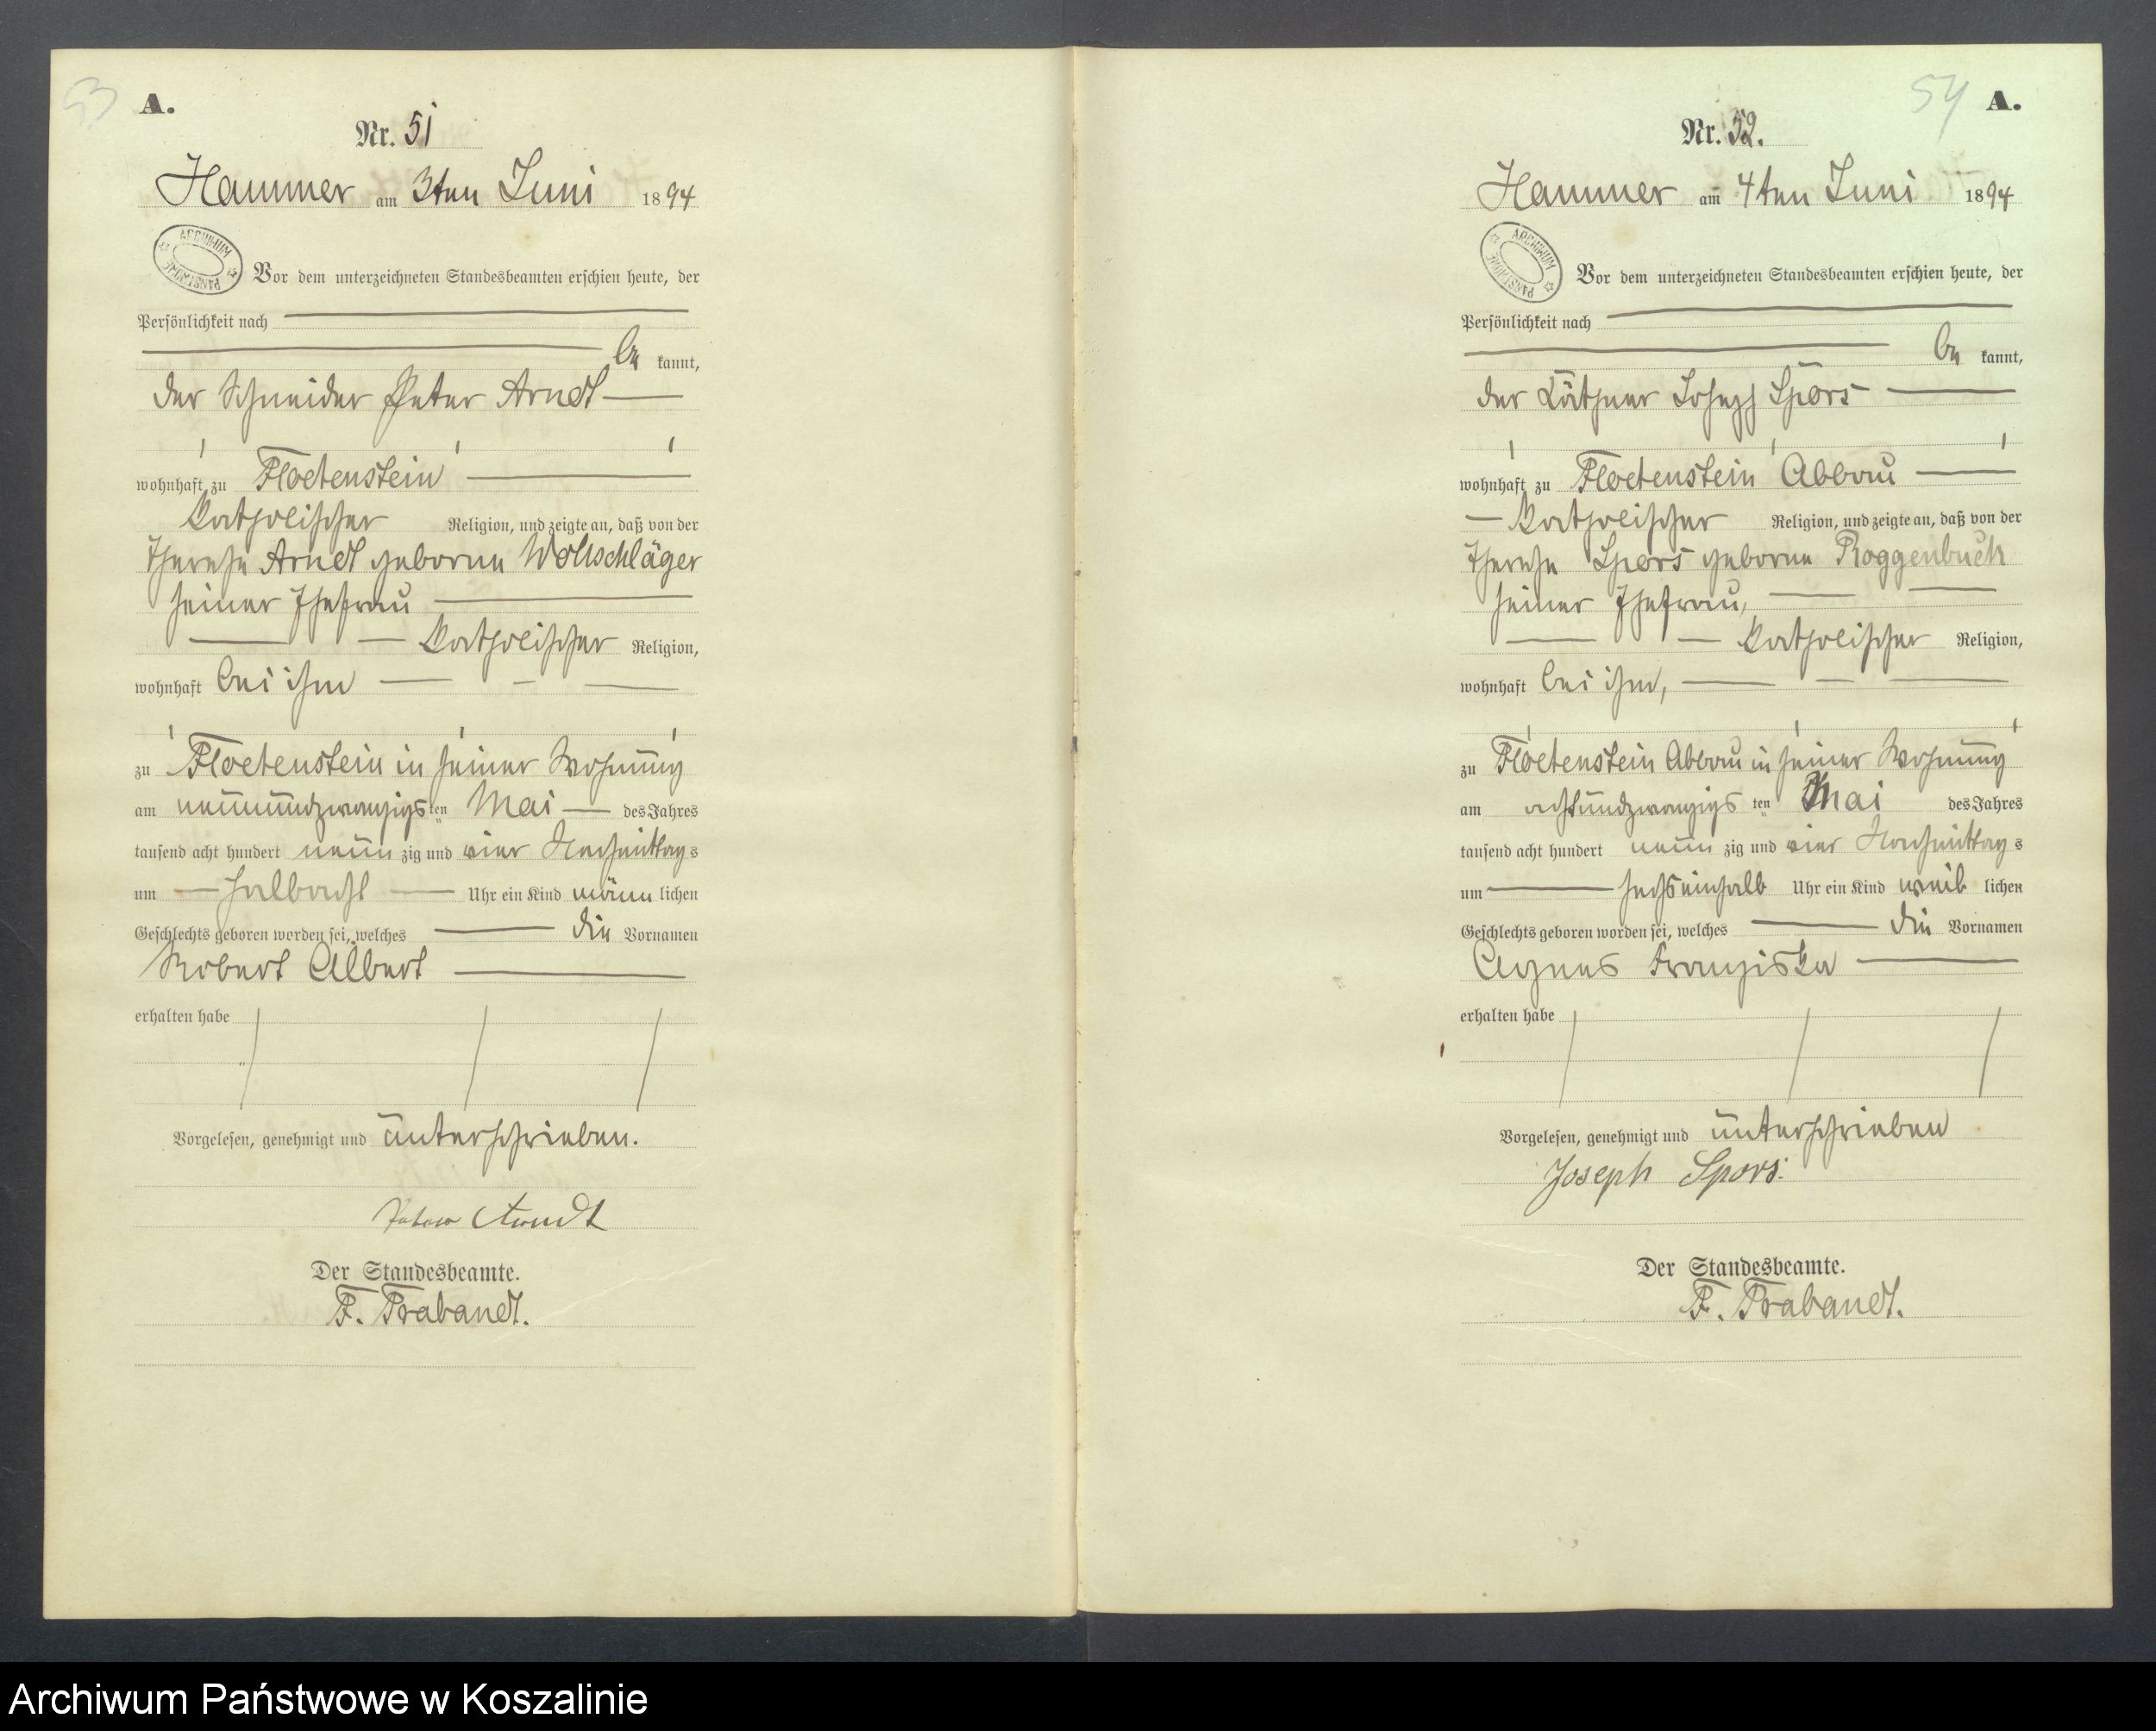 53
A.
Nr. 51
Hammer am 3ten Juni 1894
ARCHIWUM PAŃSTWOWE
Vor dem unterzeichneten Standesbeamten erschien heute, der
Persönlichkeit nach
be kannt,
der Schneider Peter Arndt
wohnhaft zu Floetenstein
katholischer Religion, und zeigte an, daß von der
Therese Arndt geborne Wollschläger
seiner Ehefrau
katholischer Religion,
wohnhaft bei ihm
zu Floetenstein in seiner Wohnung
am neunundzwanzigs ten Mai des Jahres
tausend acht hundert neun zig und vier Nachmittag s
um halbacht Uhr ein Kind männ lichen
Geschlechts geboren worden sei, welches die Vornamen
Robert Albert
erhalten habe
Vorgelesen, genehmigt und unterschrieben.
Peter Arndt
Der Standesbeamte.
F. Trabandt.
54
A.
Nr. 52.
Hammer am 4ten Juni 1894
ARCHIWUM PAŃSTWOWE
Vor dem unterzeichneten Standesbeamten erschien heute, der
Persönlichkeit nach
be kannt,
der Käthner Joseph Spors
wohnhaft zu Floetenstein Abbau
katholischer Religion, und zeigte an, daß von der
Therese Spors geborne Roggenbuck
seiner Ehefrau,
katholischer Religion,
wohnhaft bei ihm,
zu Floetenstein Abbau in seiner Wohnung
am achtundzwanzigs ten Mai des Jahres
tausend acht hundert neun zig und vier Nachmittag s
um sechseinhalb Uhr ein Kind weib lichen
Geschlechts geboren worden sei, welches die Vornamen
Agnes Franziska
erhalten habe
Vorgelesen, genehmigt und unterschrieben
Joseph Spors.
Der Standesbeamte.
F. Trabandt.
Archiwum Państwowe w Koszalinie